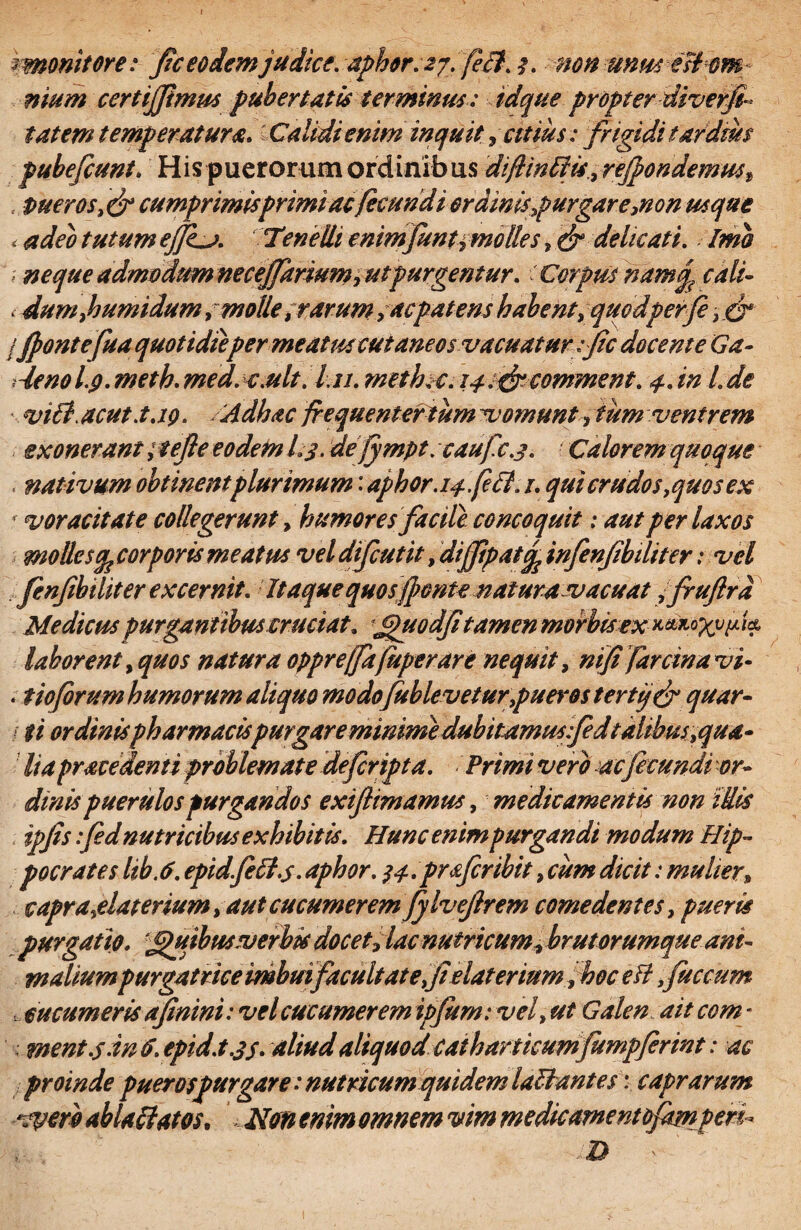 monitore: sic eodem judice. aphor. 27. sect. 3. non unus est om-
nium certissimus pubertatis terminus: idque propter diversi-
tatem temperaturæ. Calidi enim inquit, citius: frigidi tardius
pubescunt. His puerorum ordinibus distinctis, respondemus,
pueros, & cumprimis primi ac secundi ordinis, purgare, non usque
adeò tutum esse. Tenelli enim sunt, molles, & delicati. Imò
neque admodum necessarium, ut purgentur. Corpus namq; cali-
dum, humidum, molle, rarum, ac patens habent, quod per se, &
sponte sua quotidie per meatus cutaneos vacuatur: sic docente Ga-
leno l.9. meth. med. c.ult. l.11. meth. c. 14. & comment. 4. in l. de
vict. acut. t.19. Ad hæc frequenter tùm vomunt, tùm ventrem
exonerant; teste eodem l.3. de sympt. caus. c.3. Calorem quoque
nativum obtinent plurimum: aphor. 14. sect. 1. qui crudos, quos ex
voracitate collegerunt, humores facilè concoquit: aut per laxos
molles q; corporis meatus vel discutit, dissipat q; insensibiliter: vel
sensibiliter excernit. Itaque quos sponte natura vacuat, frustrà
Medicus purgantibus cruciat. Quod si tamen morbis ex κακοχυμίᾳ
laborent, quos natura oppressa superare nequit, nisi sarcina vi-
tiosorum humorum aliquo modo sublevetur, pueros tertij & quar-
ti ordinis pharmacis purgare minimè dubitamus: sed talibus, qua-
lia præcedenti problemate descripta. Primi verò ac secundi or-
dinis puerulos purgandos existimamus, medicamentis non illis
ipsis: sed nutricibus exhibitis. Hunc enim purgandi modum Hip-
pocrates lib. 6. epid. sect. 5. aphor. 34. præscribit, cùm dicit: mulier,
capra, elaterium, aut cucumerem sylvestrem comedentes, pueris
purgatio. Quibus verbis docet, lac nutricum, brutorumque ani-
malium purgatrice imbui facultate, si elaterium, hoc est, succum
cucumeris asinini: vel cucumerem ipsum: vel, ut Galen. ait com-
ment. 5. in 6. epid. t. 35. aliud aliquod catharticum sumpserint: ac
proinde pueros purgare: nutricum quidem lactantes: caprarum
verò ablactatos. Non enim omnem vim medicamentosam peri-
D